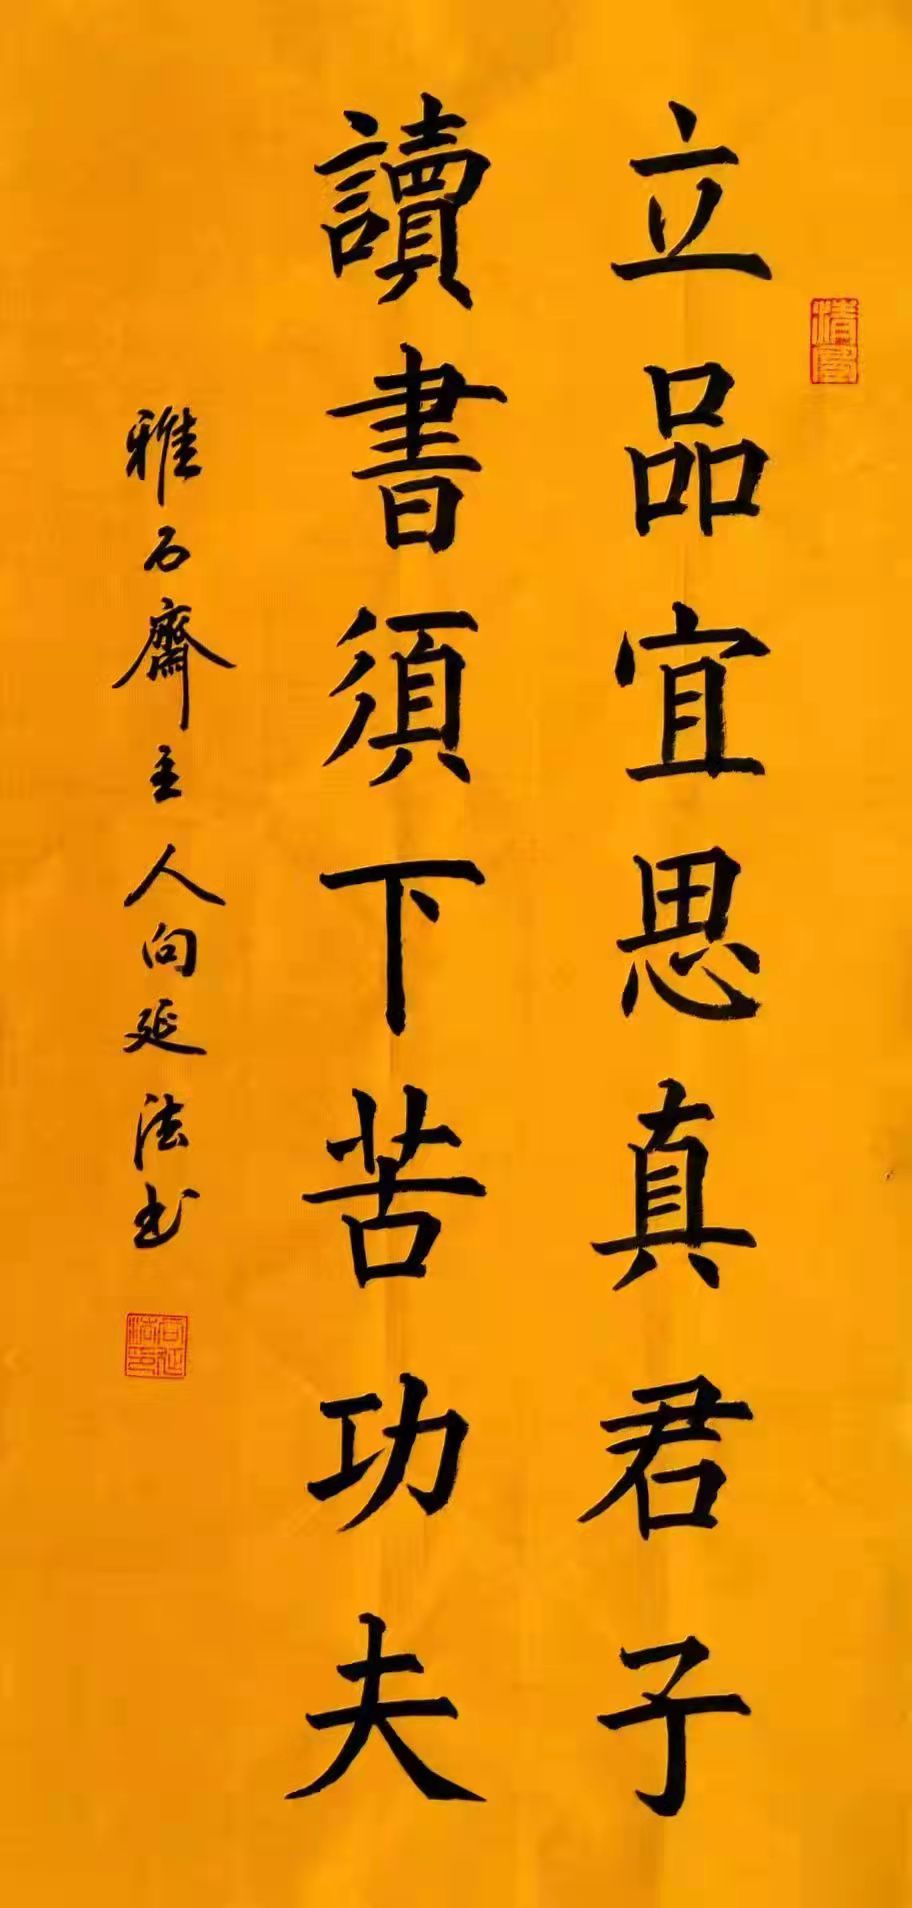 立品宜思真君子
讀書須下苦功夫
雅石齋主人向延法书